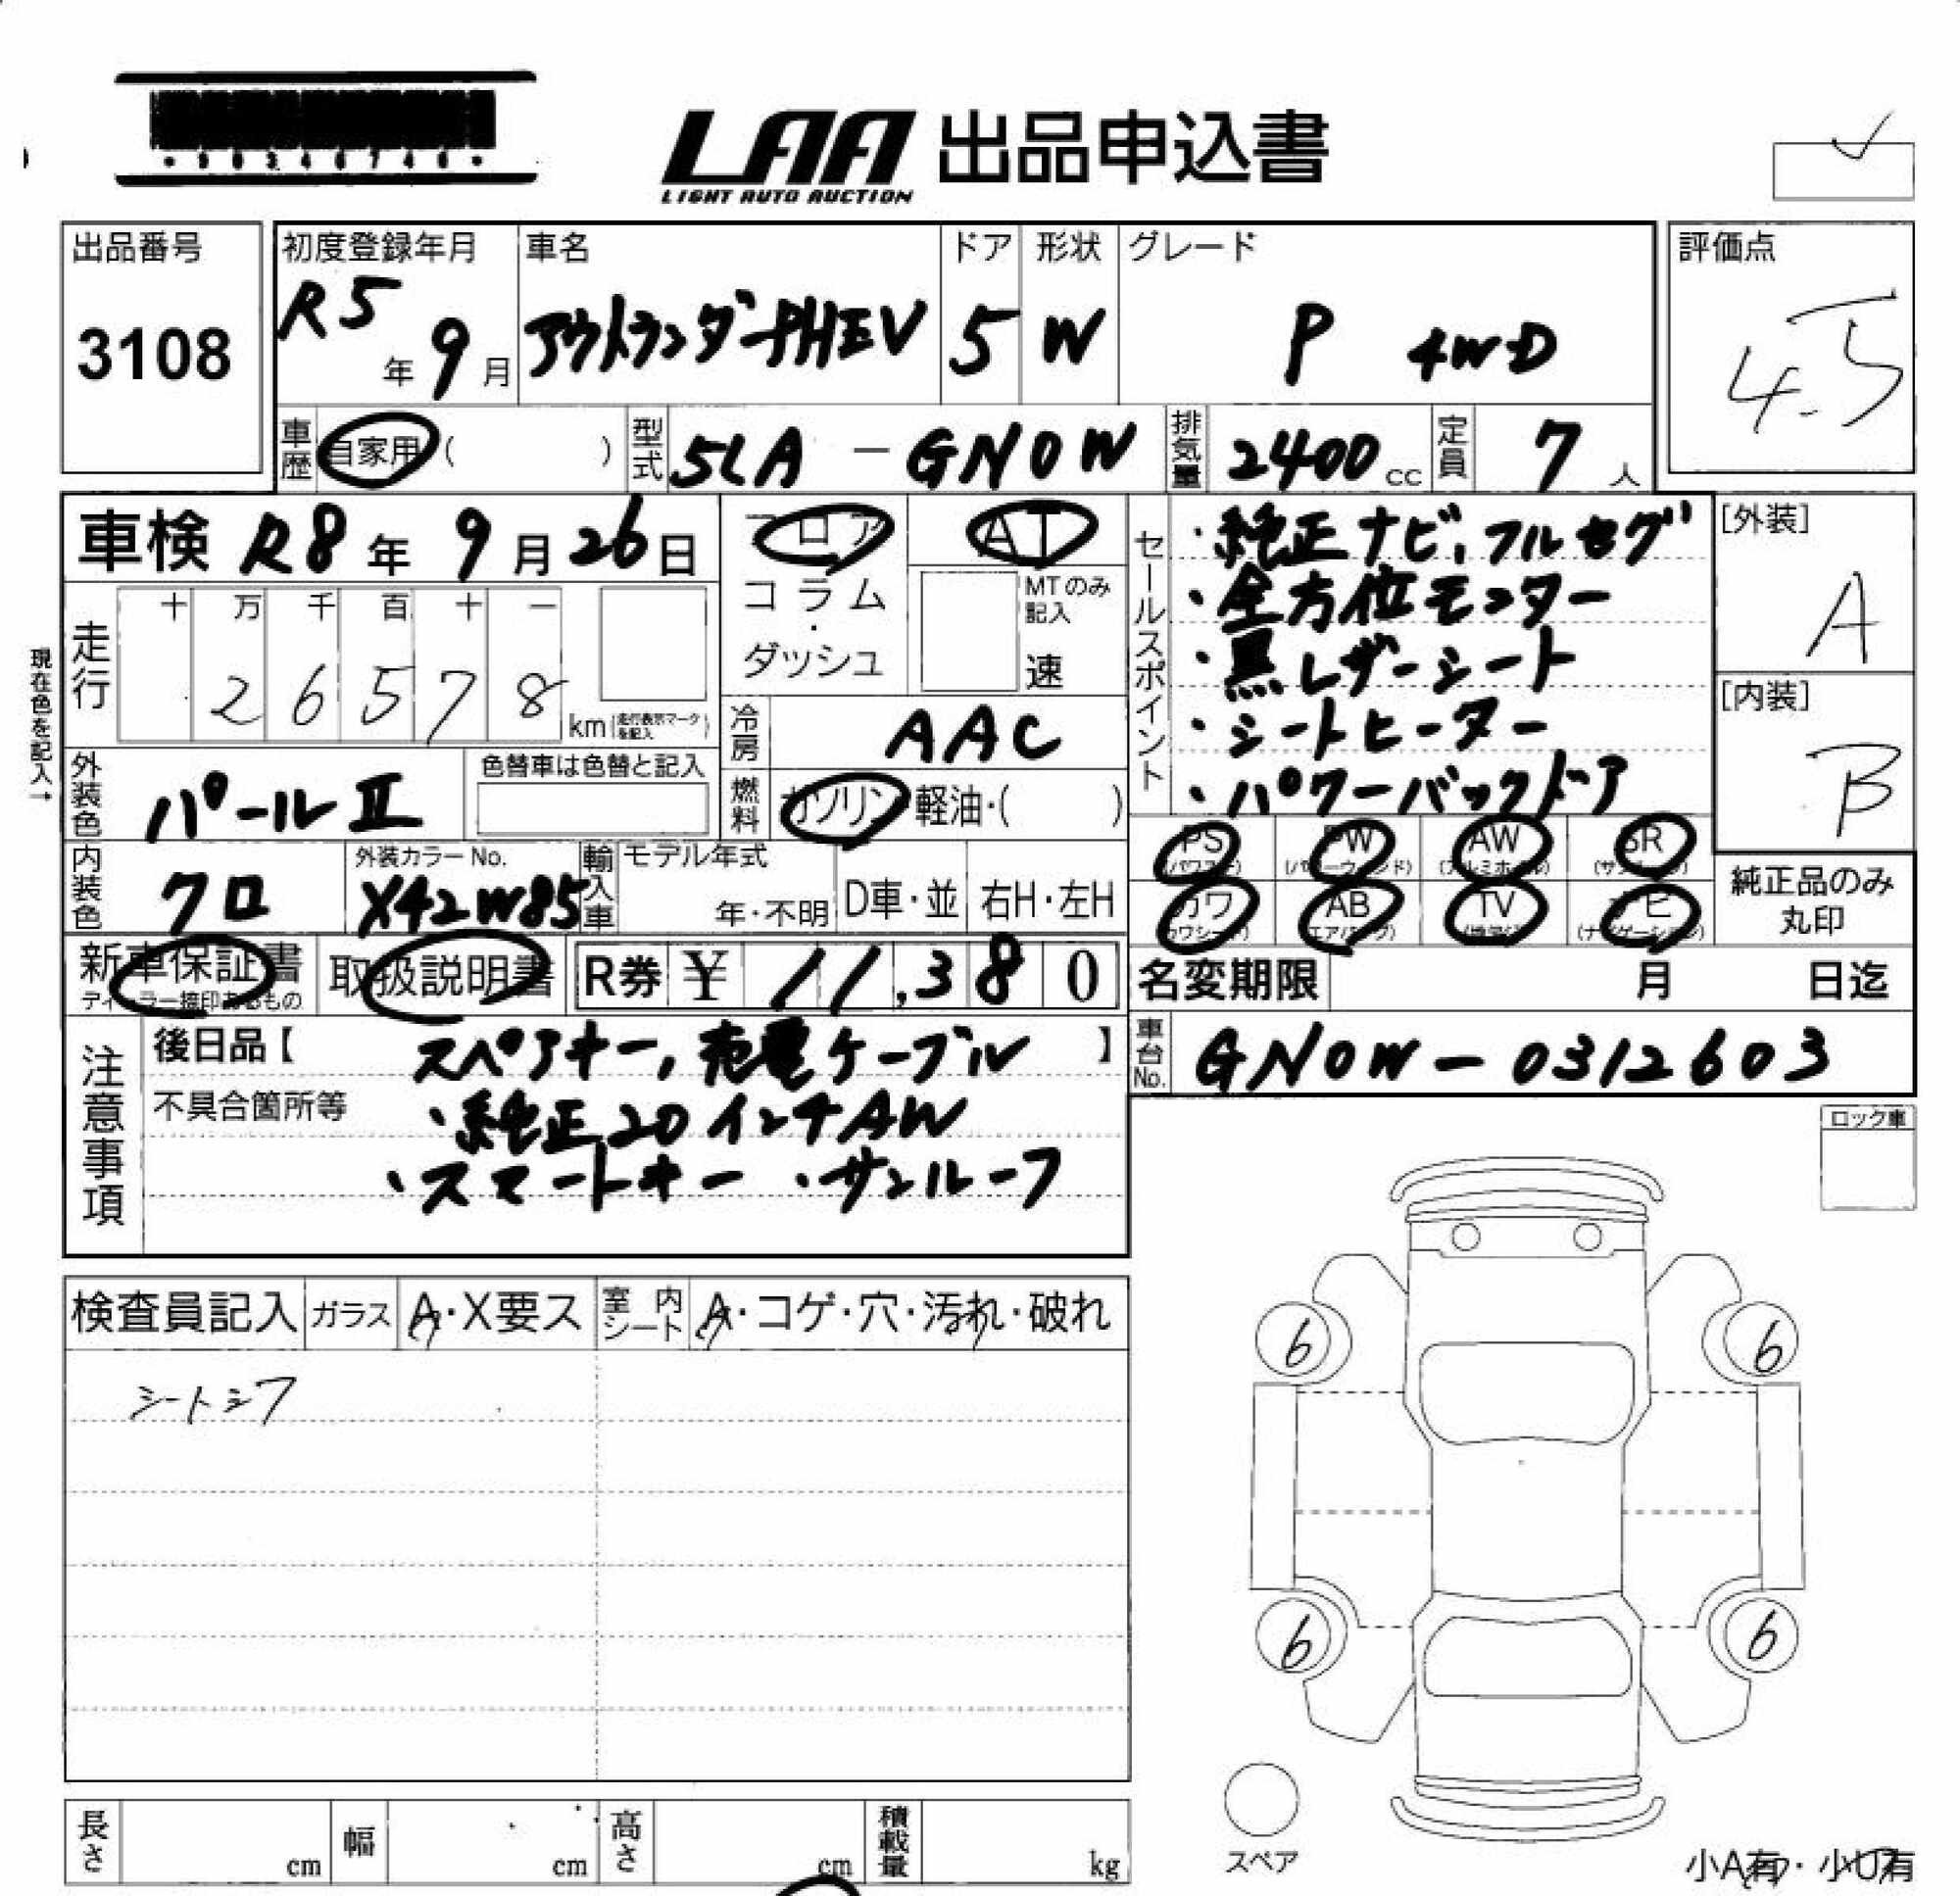 LAA 出品申込書
LIGHT AUTO AUCTION
出品番号
3108
初度登録年月
R5年 9月
車名
アウトランダーPHEV
ドア
5
形状
W
グレード
P 4WD
評価点
4.5
車歴 自家用 ( )
型式 5LA-GN0W
排気量 2400 cc
定員 7 人
車検 R8年 9月 26日
フロア
コラム
・
ダッシュ
AT
MTのみ
記入
速
セールスポイント
・純正ナビ、フルセグ
・全方位モニター
・黒レザーシート
・シートヒーター
・パワーバックドア
[外装]
A
[内装]
B
現在色を記入→
走行
十 万 千 百 十 一
2 6 5 7 8
km (走行表示マークを記入)
冷房 AAC
外装色 パールⅡ
色替車は色替と記入
燃料 ガソリン・軽油・( )
PS (パワステ)
PW (パワーウィンド)
AW (アルミホイル)
SR (サンルーフ)
カワ (カワシート)
AB (エアバック)
TV
ナビ (ナビゲーション)
純正品のみ
丸印
内装色 クロ
外装カラーNo.
X42W85
輸入車
モデル年式
年・不明
D車・並
右H・左H
新車保証書
ディーラー捺印あるもの
取扱説明書
R券 ¥ 11,380
名変期限 月 日迄
車台No. GN0W-0312603
注意事項
後日品【 スペアキー, 充電ケーブル 】
不具合箇所等 ・純正20インチAW
・スマートキー ・サンルーフ
ロック車
検査員記入 ガラス A・X要ス 室内シート A・コゲ・穴・汚れ・破れ
シートシワ
6
6
6
6
スペア
長さ cm
幅 cm
高さ cm
積載量 kg
小A有・小U有